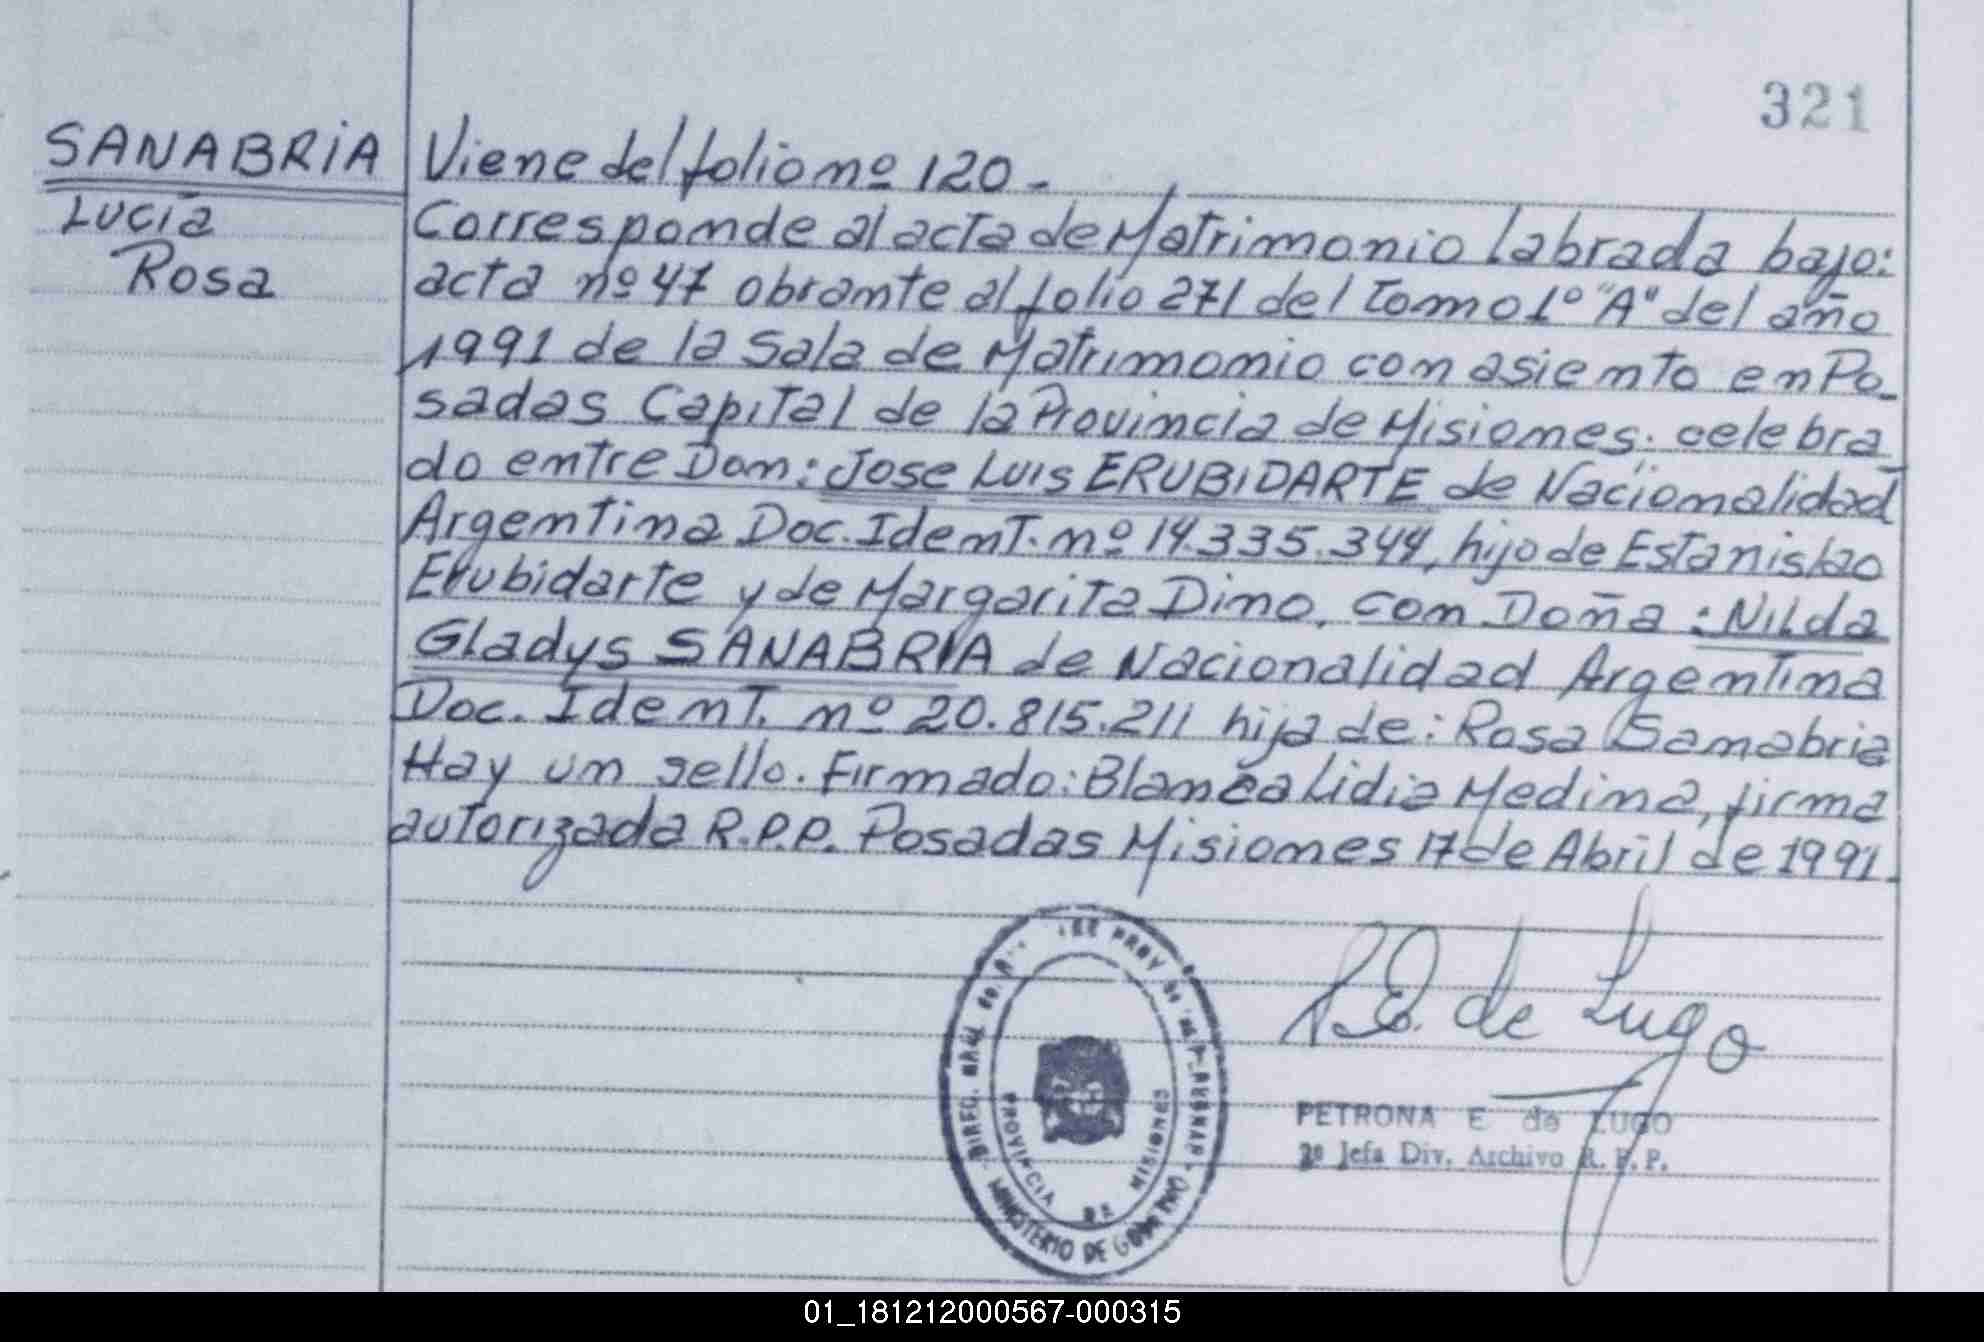 321
SANABRIA
Lucía
Rosa
Viene del folio nº 120 -
Corresponde al acta de Matrimonio labrada bajo:
acta nº 47 obrante al folio 271 del Tomo 1º "A" del año
1991 de la Sala de Matrimonio con asiento en Po-
sadas Capital de la Provincia de Misiones. celebra
do entre Don: Jose Luis ERUBIDARTE de Nacionalidad
Argentina Doc. Ident. nº 14.335.344, hijo de Estanislao
Erubidarte y de Margarita Dino, con Doña: Nilda
Gladys SANABRIA de Nacionalidad Argentina
Doc. Ident. nº 20.815.211 hija de: Rosa Sanabria
Hay un sello. Firmado: Blanca Lidia Medina, firma
autorizada R.P.P. Posadas Misiones 17 de Abril de 1991.
DIREC. GRAL.
PROVINCIA DE MISIONES
MINISTERIO DE GOBIERNO
P.E. de Lugo
PETRONA E de LUGO
2º Jefa Div. Archivo R.P.P.
01_181212000567-000315